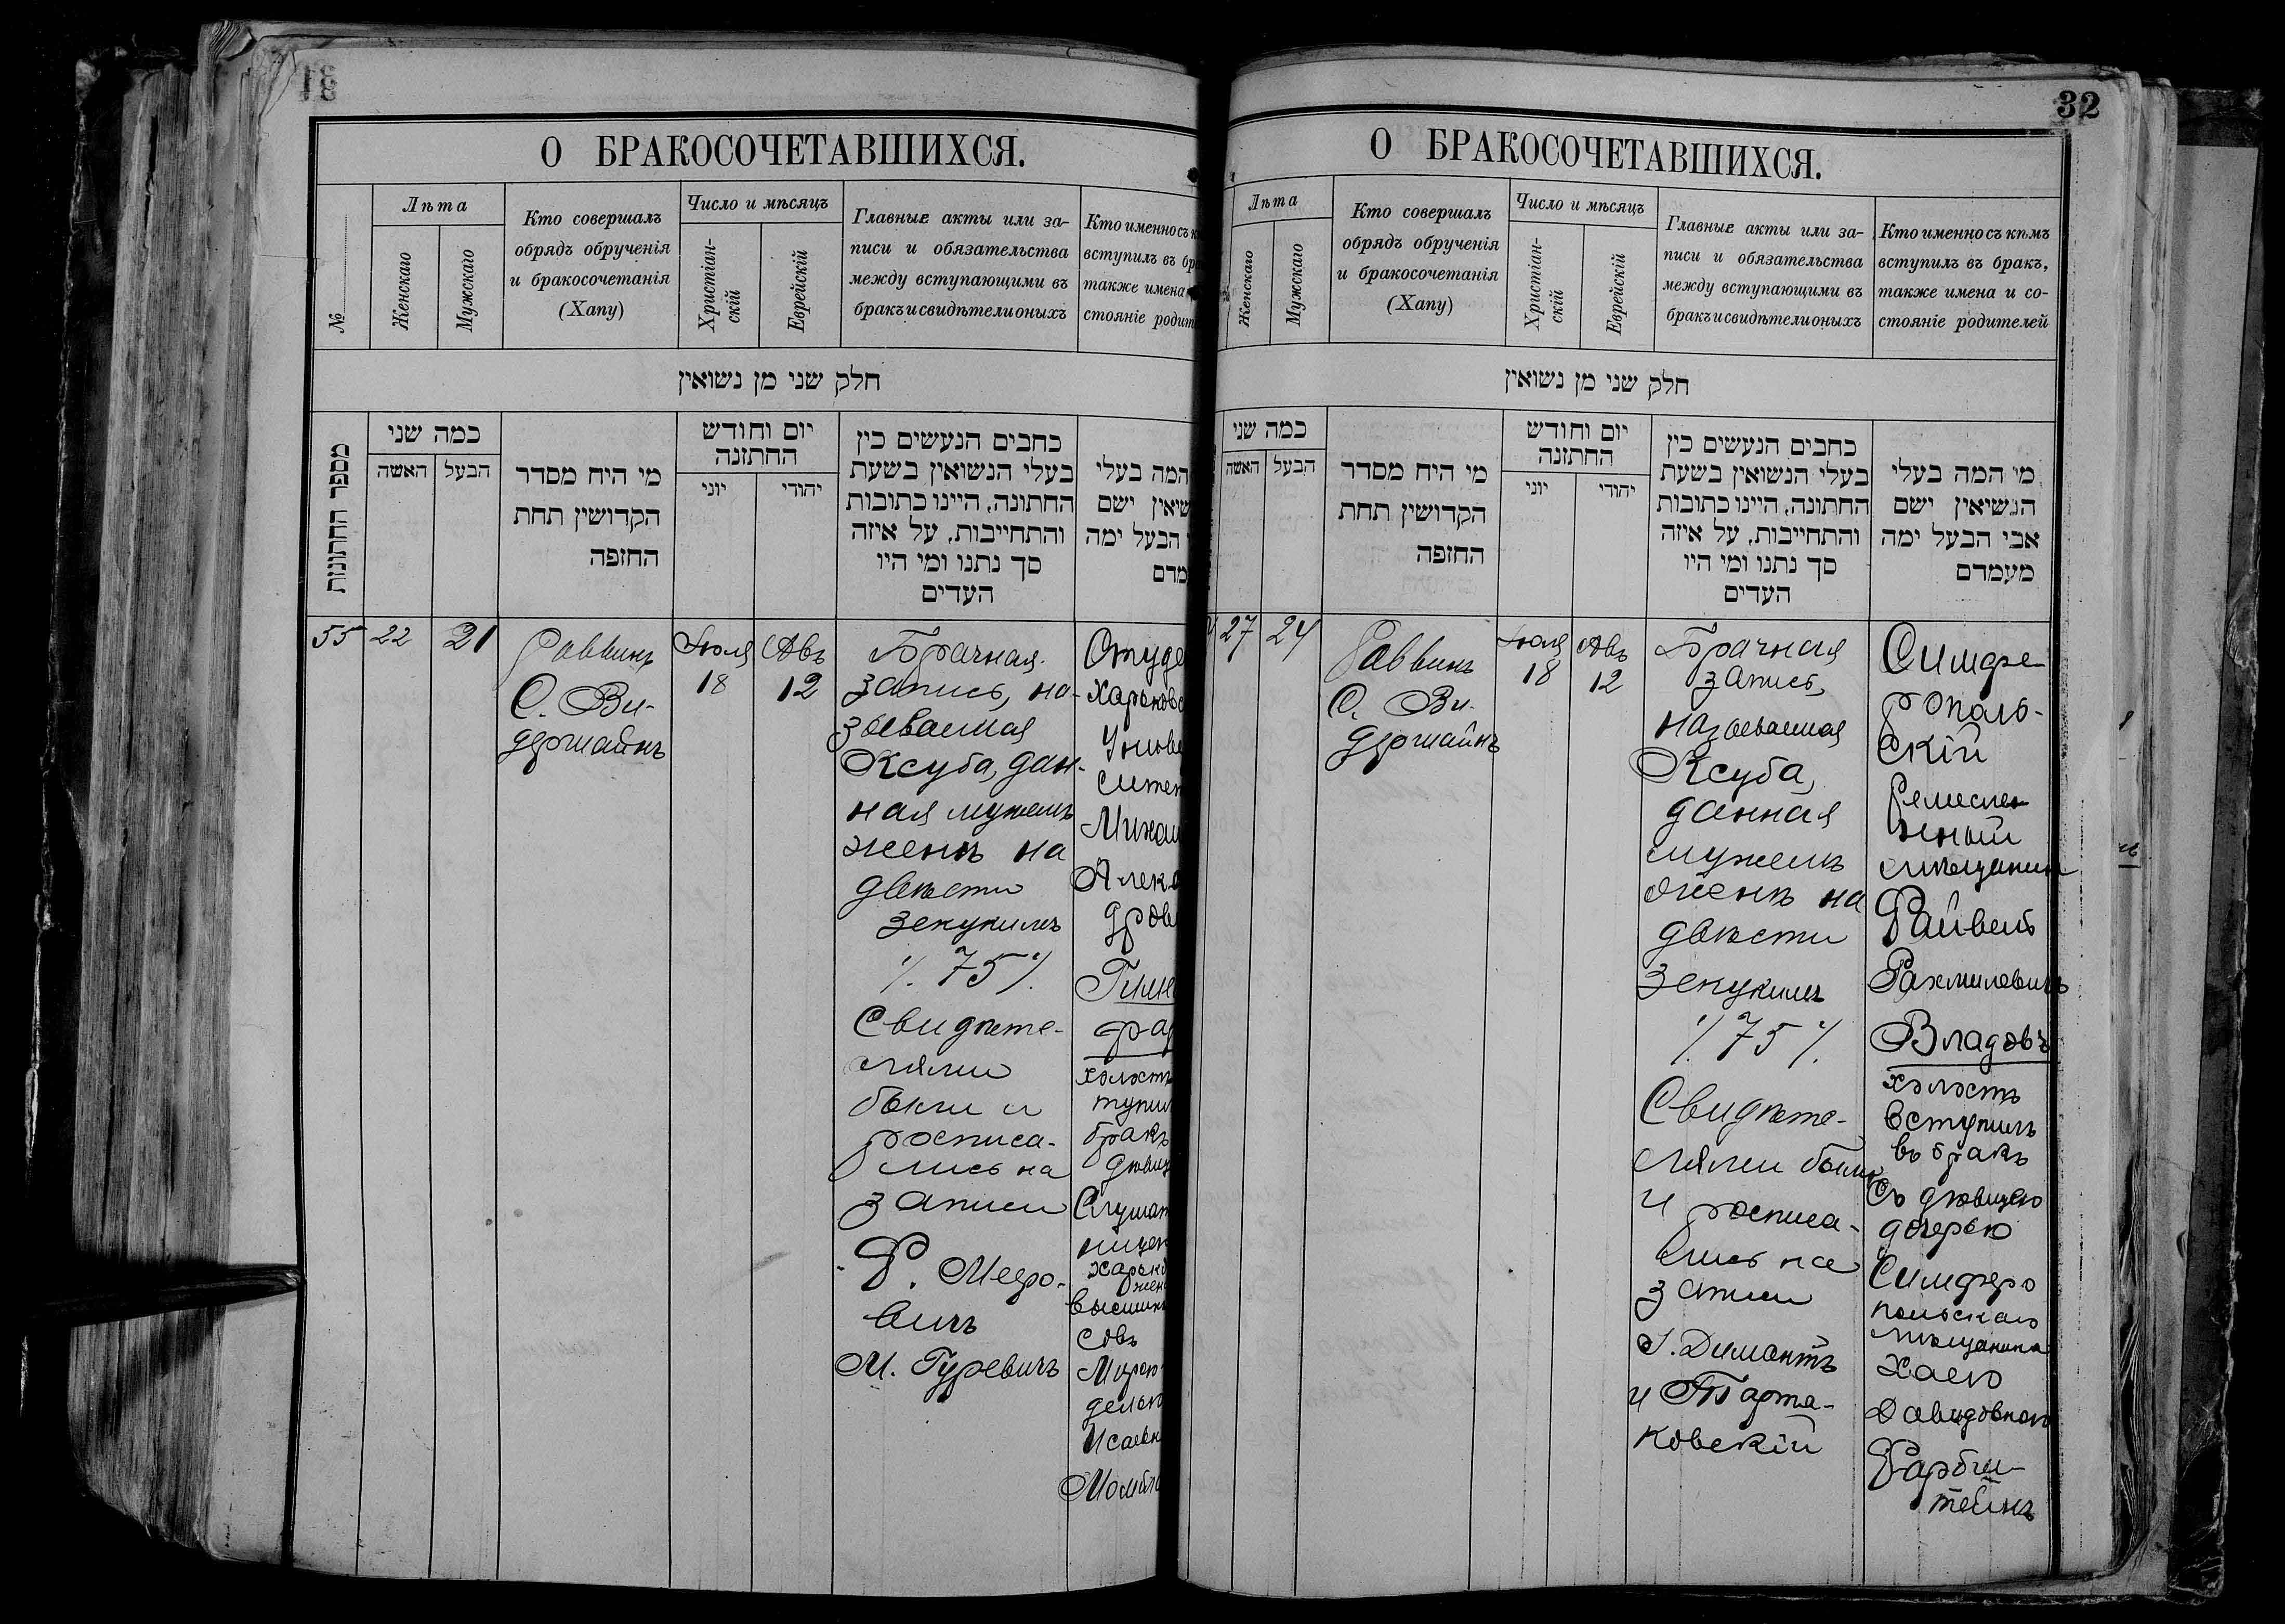 31
О БРАКОСОЧЕТАВШИХСЯ.
№
Лѣта
Женскаго
Мужскаго
Кто совершалъ
обрядъ обрученія
и бракосочетанія
(Хапу)
Число и мѣсяцъ
Христіан-
скій
Еврейскій
Главные акты или за-
писи и обязательства
между вступающими въ
бракъ и свидѣтели оныхъ
Кто именно съ
вступилъ въ
также имена
стояніе
חלק שני מן נשואין
מספר החתונות
כמה שני
האשה
הבעל
מי היח מסדר
הקדושין תחת
החופה
יום וחודש
החתונה
יוני
יהודי
כתבים הנעשים בין
בעלי הנשואין בשעת
החתונה, היינו כתובות
והתחייבות, על איזה
סך נתנו ומי היו
העדים
המה בעלי
ישם
הבעל ימה
55
22
21
Раввинъ
С. Ви-
дершайнъ
Іюля
18
Авъ
12
Брачная
запись, на-
зываемая
Ксуба, дан-
ная мужемъ
женѣ на
двѣсти
зекукимъ
٪ 75 ٪
Свидѣте-
лями
были и
росписа-
лись на
записи
Р. Мееро-
вичъ
М. Гуревичъ
32
О БРАКОСОЧЕТАВШИХСЯ.
Лѣта
Женскаго
Мужскаго
Кто совершалъ
обрядъ обрученія
и бракосочетанія
(Хапу)
Число и мѣсяцъ
Христіан-
скій
Еврейскій
Главные акты или за-
писи и обязательства
между вступающими въ
бракъ и свидѣтели оныхъ
Кто именно съ кѣмъ
вступилъ въ бракъ,
также имена и со-
стояніе родителей
חלק שני מן נשואין
כמה שני
האשה
הבעל
מי היח מסדר
הקדושין תחת
החופה
יום וחודש
החתונה
יוני
יהודי
כתבים הנעשים בין
בעלי הנשואין בשעת
החתונה, היינו כתובות
והתחייבות, על איזה
סך נתנו ומי היו
העדים
מי המה בעלי
הנשיאין ישם
אבי הבעל ימה
מעמדם
27
24
Раввинъ
С. Ви-
дершайнъ
Іюля
18
Авъ
12
Брачная
запись,
называемая
Ксуба,
данная
мужемъ
женѣ на
двѣсти
зекукимъ
٪ 75 ٪
Свидѣте-
лями были
и росписа-
лись на
записи
І. Димантъ
и Тарта-
ковскій
Симфе-
рополь-
скій
ремеслен-
ный
мѣщанинъ
Файвель
Рахмилевичъ
Владовъ
холостъ
вступилъ
въ бракъ
съ дѣвицею
дочерью
Симферо
польскаго
мѣщанина
Хаею
Давидовною
Фарбш-
тейнъ